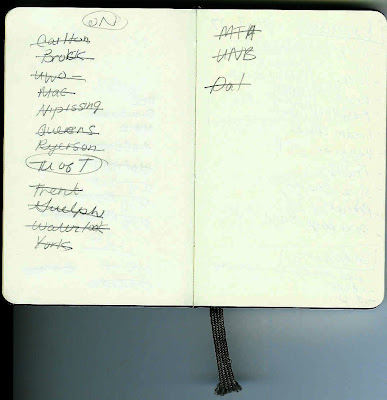 ON
Carlton
Brock
UWO
Mac
Nipissing
Queens
Ryerson
U of T
Trent
Guelph
Waterloo
York
MTA
UNB
Dal